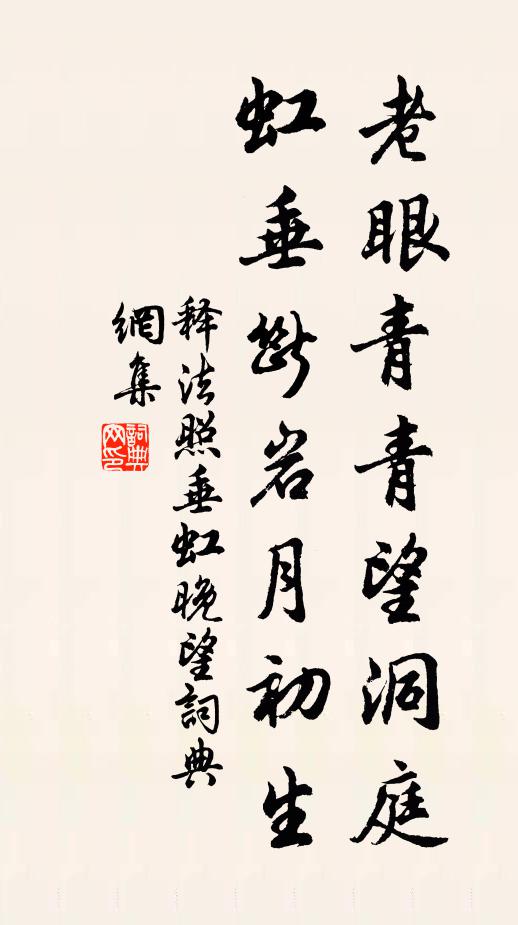 老眼青青望洞庭
虹垂断岩月初生
释法照垂虹晚望詞典
網集
詞典
网印